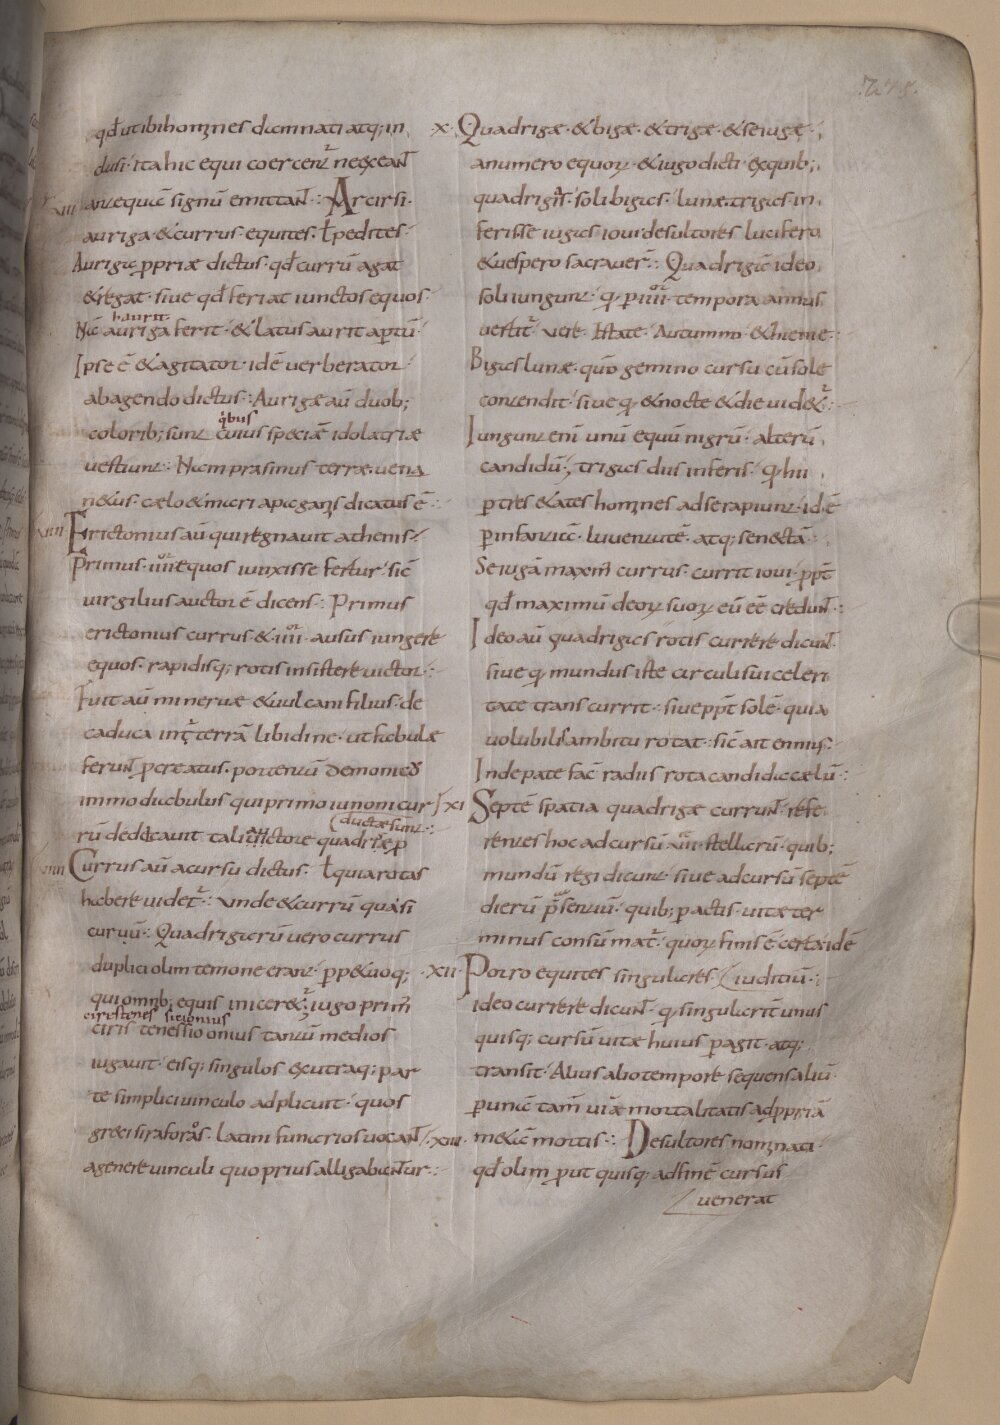 qđ utibi homines damnati atq; in
clusi · ita hic equi coercent᷑ ne exeant
anteq̄ā signū emittant :· Arcirsi ·
auriga · & currus · equites · ł pedites ·
Aurigā ꝓpriæ dictus · qđ currū agat
& regat · siue qđ feriat iunctos equos ·
haurit
Nā auriga ferit · & latus aurit aptū ·
Ipse ē & agitator · idē uerberator
ab agendo dictus :· Aurigæ aū duob;
q̇bus
colorib; sunt cuius speciæ idolatriæ
uestiunt :· Nam prasinus terræ uena
n&us · cælo & mari apud dicatus ē :·
XIIII Erictonius aū qui regnauit athenis ·
Primus · IIIIor equos iunxisse fertur · sic̄
uirgilius auctor ē dicens :· Primus
erictonius currus & · IIIIor · ausus iungere
equos · rapidisq; rotis insistere uictor ·
Fuit aū mineruæ & uulcani filius · de
caduca in terrā libidine · ut fabulæ
ferunt ꝓcreatus · portentū demonicū
immo diabulus qui primo iunoni cur
(ductæ sunt :·
rū dedicauit tali auctore quadrigæ ꝓ
Currus aū a cursu dictus · ł quia rotas
habere uidet᷑ :· unde & currū quasi
curuū :· Quadrigarū uero currus
duplici olim temone erant · ꝑp&uoq;
qui omnib; equis iniceret᷑ · iugo · primus
ciristenes sicionius
ciris tenessio onius tantū medios
iugauit · eisq; singulos ex utraq; par
te simplici uinculo adplicuit · quos
greci siraforos · latini funarios uocant
a genere uinculi quo prius alligabantur :·
· X · Quadrigæ · & bigæ · & trigæ · & seiugæ ·
a numero equoꝝ · & iugo dicti · ex quib; ·
quadrigas · soli bigas · lunæ · trigas in
feris seiugas ioui desultores lucifero
& uespero sacrauer̄ :· Quadrigā ideo
soli iungunt · q̨ ꝑ IIIIor tempora annus
uertit᷑ uere · Estate · Autumno · & hieme ·
Bigas lunæ · quō gemino cursu cū sole
contendit · siue q̨ & nocte & die uidet᷑ :·
Iungunt enī unū equū nigrū · alterū
candidū · trigas diis inferis · q̨ hii
ꝑ tres &ates homines ad se rapiunt · id ē
ꝑ infantiā · iuuentutē · atq; senectā ·
Seiugā maxim̄ currus · currit ioui · ꝓpt̄
qđ maximū deoꝝ suoꝝ eū eē credunt :·
Ideo aū quadrigas rotis currere dicunt
siue q̨ mundus iste circuli sui celeri
tate transcurrit · siue ꝓpt̄ solē · quia
uolubilis ambitu rotat · sic̄ ait ennius :·
Inde pate fac̄ radiis rota candida cælū :·
XI Septē spatia quadrigæ currunt · refe
rentes hoc ad cursū · VII · stellarū · quib;
mundū regi dicunt · siue ad cursū septē
dierū p̄sentiū · quib; ꝑactis · uitæ ter
minus consūmat᷑ · quoꝝ finis ē certa idē
· XII · Porro equites singulares · (iuditiū :·
ideo currere dicunt · q̨ singularit̄ unus
quisq; cursū uitæ huius ꝑagit · atq;
transit · Alius alio tempore sequens aliū ·
ꝑ unā tam̄ uiæ mortalitatis ad ꝓpriā
· XIII · metā mortis :· Desultores nominati ·
qđ olim ꝓut quisq; ad finē cursus
uenerat